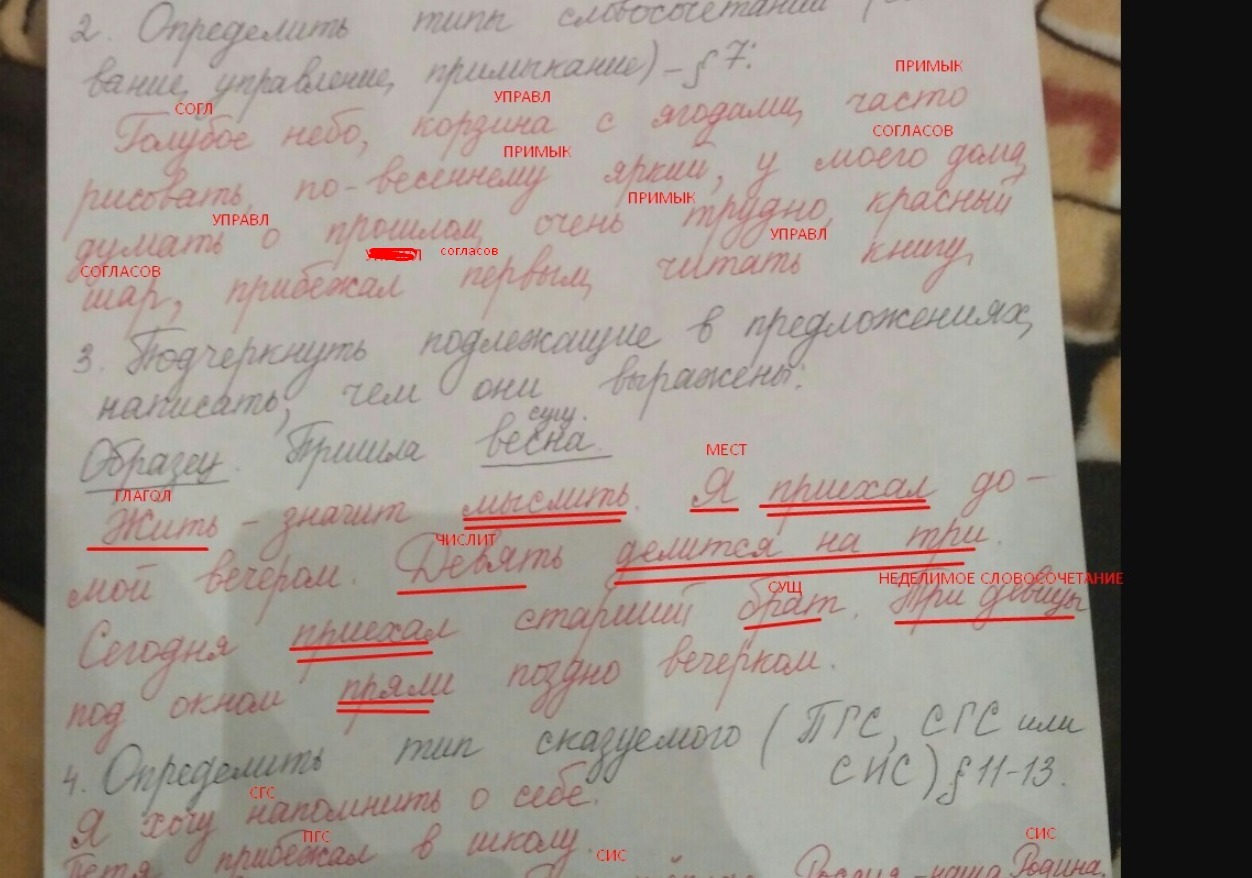 2. Определить типы словосочетаний
вание, управление, примыкание) - § 7:
ПРИМЫК
СОГЛ УПРАВЛ
Голубое небо, корзина с ягодами, часто
ПРИМЫК СОГЛАСОВ
рисовать, по-весеннему яркий, у моего дома,
УПРАВЛ ПРИМЫК УПРАВЛ
думать о прошлом, очень трудно, красный
СОГЛАСОВ согласов
шар, прибежал первым, читать книгу.
3. Подчеркнуть подлежащие в предложениях,
написать, чем они выражены:
сущ.
Образец. Пришла весна.
ГЛАГОЛ МЕСТ
Жить - значит мыслить. Я приехал до-
ЧИСЛИТ
мой вечером. Девять делится на три.
СУЩ НЕДЕЛИМОЕ СЛОВОСОЧЕТАНИЕ
Сегодня приехал старший брат. Три девицы
под окном пряли поздно вечерком.
4. Определить тип сказуемого (ПГС, СГС или
СИС) § 11-13.
СГС
Я хочу напомнить о себе.
ПГС СИС СИС
Петя прибежал в школу. Россия - наша Родина.